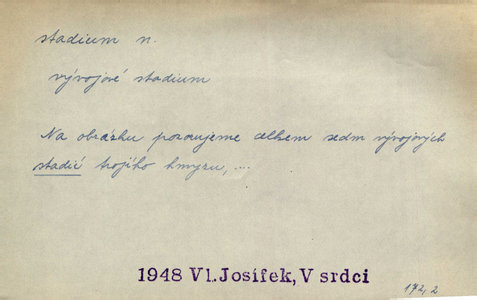 stadium n.
vývojové stadium
Na obrázku pozorujeme celkem sedm vývojových
stadií trojího hmyzu, ...
1948 Vl. Josífek, V srdci
172,2